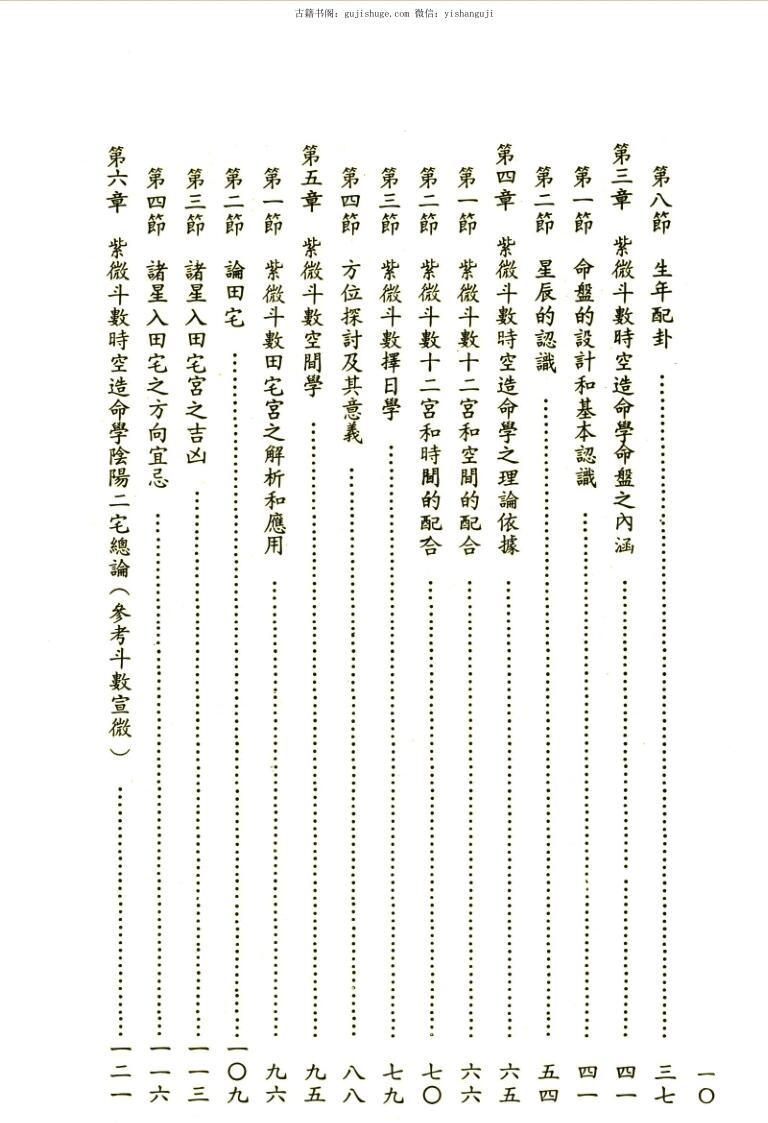 古籍书阁：gujishuge.com 微信：yishanguji
一〇
第八節　生年配卦……三七
第三章　紫微斗數時空造命學命盤之內涵……四一
第一節　命盤的設計和基本認識……四一
第二節　星辰的認識……五四
第四章　紫微斗數時空造命學之理論依據……六五
第一節　紫微斗數十二宮和空間的配合……六六
第二節　紫微斗數十二宮和時間的配合……七〇
第三節　紫微斗數擇日學……七九
第四節　方位探討及其意義……八八
第五章　紫微斗數空間學……九五
第一節　紫微斗數田宅宮之解析和應用……九六
第二節　論田宅……一〇九
第三節　諸星入田宅宮之吉凶……一一三
第四節　諸星入田宅之方向宜忌……一一六
第六章　紫微斗數時空造命學陰陽二宅總論（參考斗數宣微）……一二一